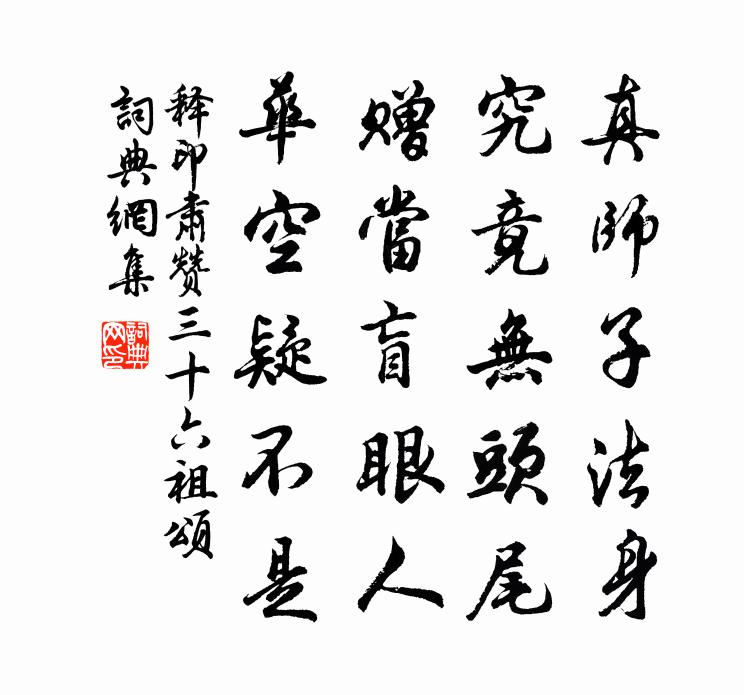 真師子法身
究竟無頭尾
贈當盲眼人
華空疑不是
釋印肅贊三十六祖頌
詞典網集
詞典網印